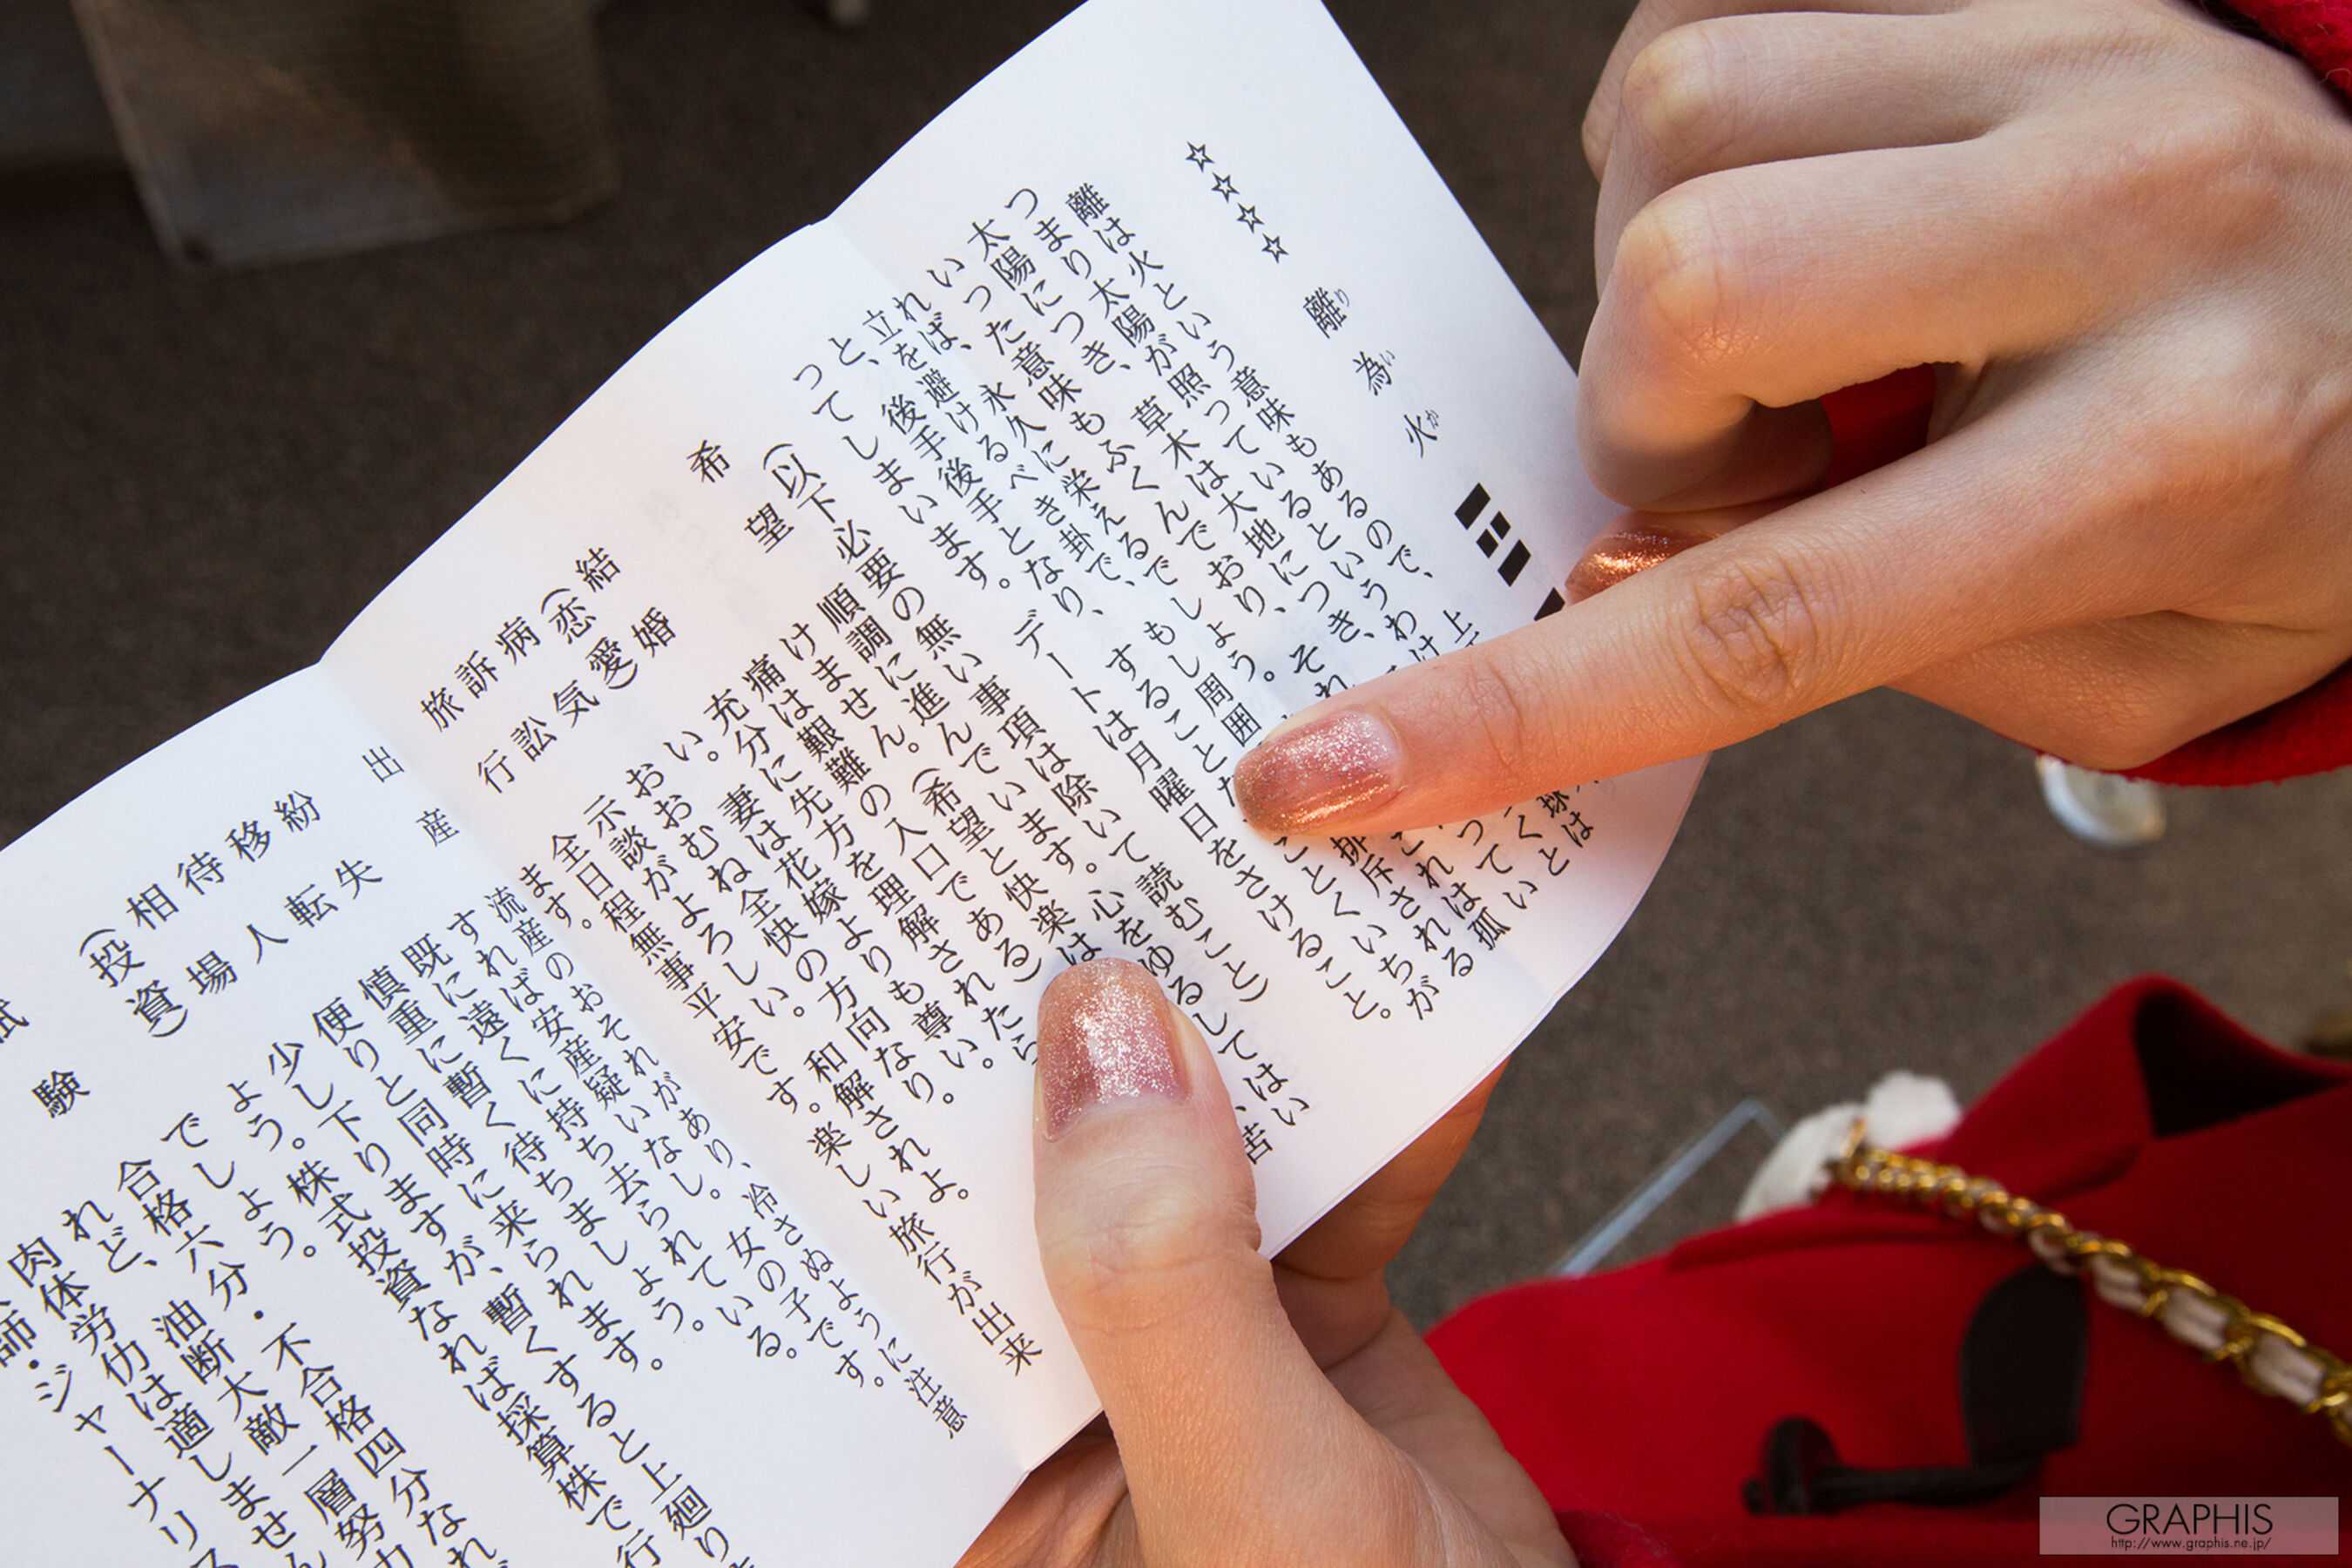 ☆☆☆☆ 離為火
り い か
離は火という意味もあるので、上
つまり太陽が照っているというわけ
太陽につき、草木は大地につき、
いった意味もふくんでおり、それ
れば、永久に栄えるでしょう。もし周囲
立を避けるべき卦で、すること
と、後手後手となり、デートは月曜日をさけること。
ってしまいます。
球は
くいと
っては孤
これがる
排斥され
ことくいちが
(以下必要の無い事項は除いて読むこと)
希望 順調に進んでいます。心をゆるしてはい
けません。(希望と快楽は、苦
痛は艱難の入口である)
結婚(恋愛) 充分に先方を理解されたら
い。妻は花嫁よりも尊い。
病気 おおむね全快の方向なり。
訴訟 示談がよろしい。和解されよ。
旅行 全日程無事平安です。楽しい旅行が出来
ます。
出産 流産のおそれがあり、冷さぬように注意
すれば安産疑いなし。女の子です。
紛失 既に遠くに持ち去られている。
移転 慎重に暫く待ちましょう。
待人 便りと同時に来られます。
相場(投資) 少し下りますが、暫くすると上廻り
ょう。株式投資なれば採算株で行
でしょう。
試験 合格六分・不合格四分なれ
れど、油断大敵一層努力
肉体労仂は適しません
師・ジャーナリス
GRAPHIS
http://www.graphis.ne.jp/